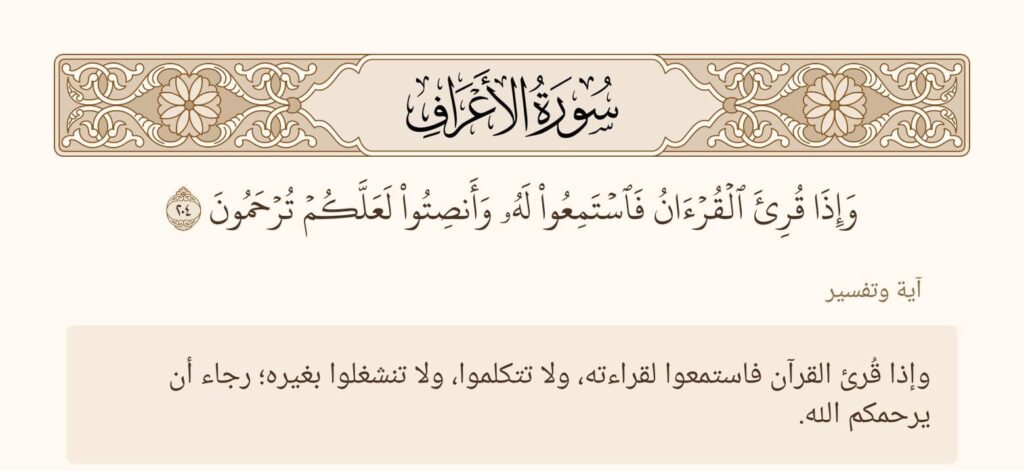 سُورَةُ الأَعْرَافِ
وَإِذَا قُرِئَ ٱلْقُرْءَانُ فَٱسْتَمِعُوا۟ لَهُۥ وَأَنصِتُوا۟ لَعَلَّكُمْ تُرْحَمُونَ ٢٠٤
آية وتفسير
وإذا قُرئ القرآن فاستمعوا لقراءته، ولا تتكلموا، ولا تنشغلوا بغيره؛ رجاء أن
يرحمكم الله.